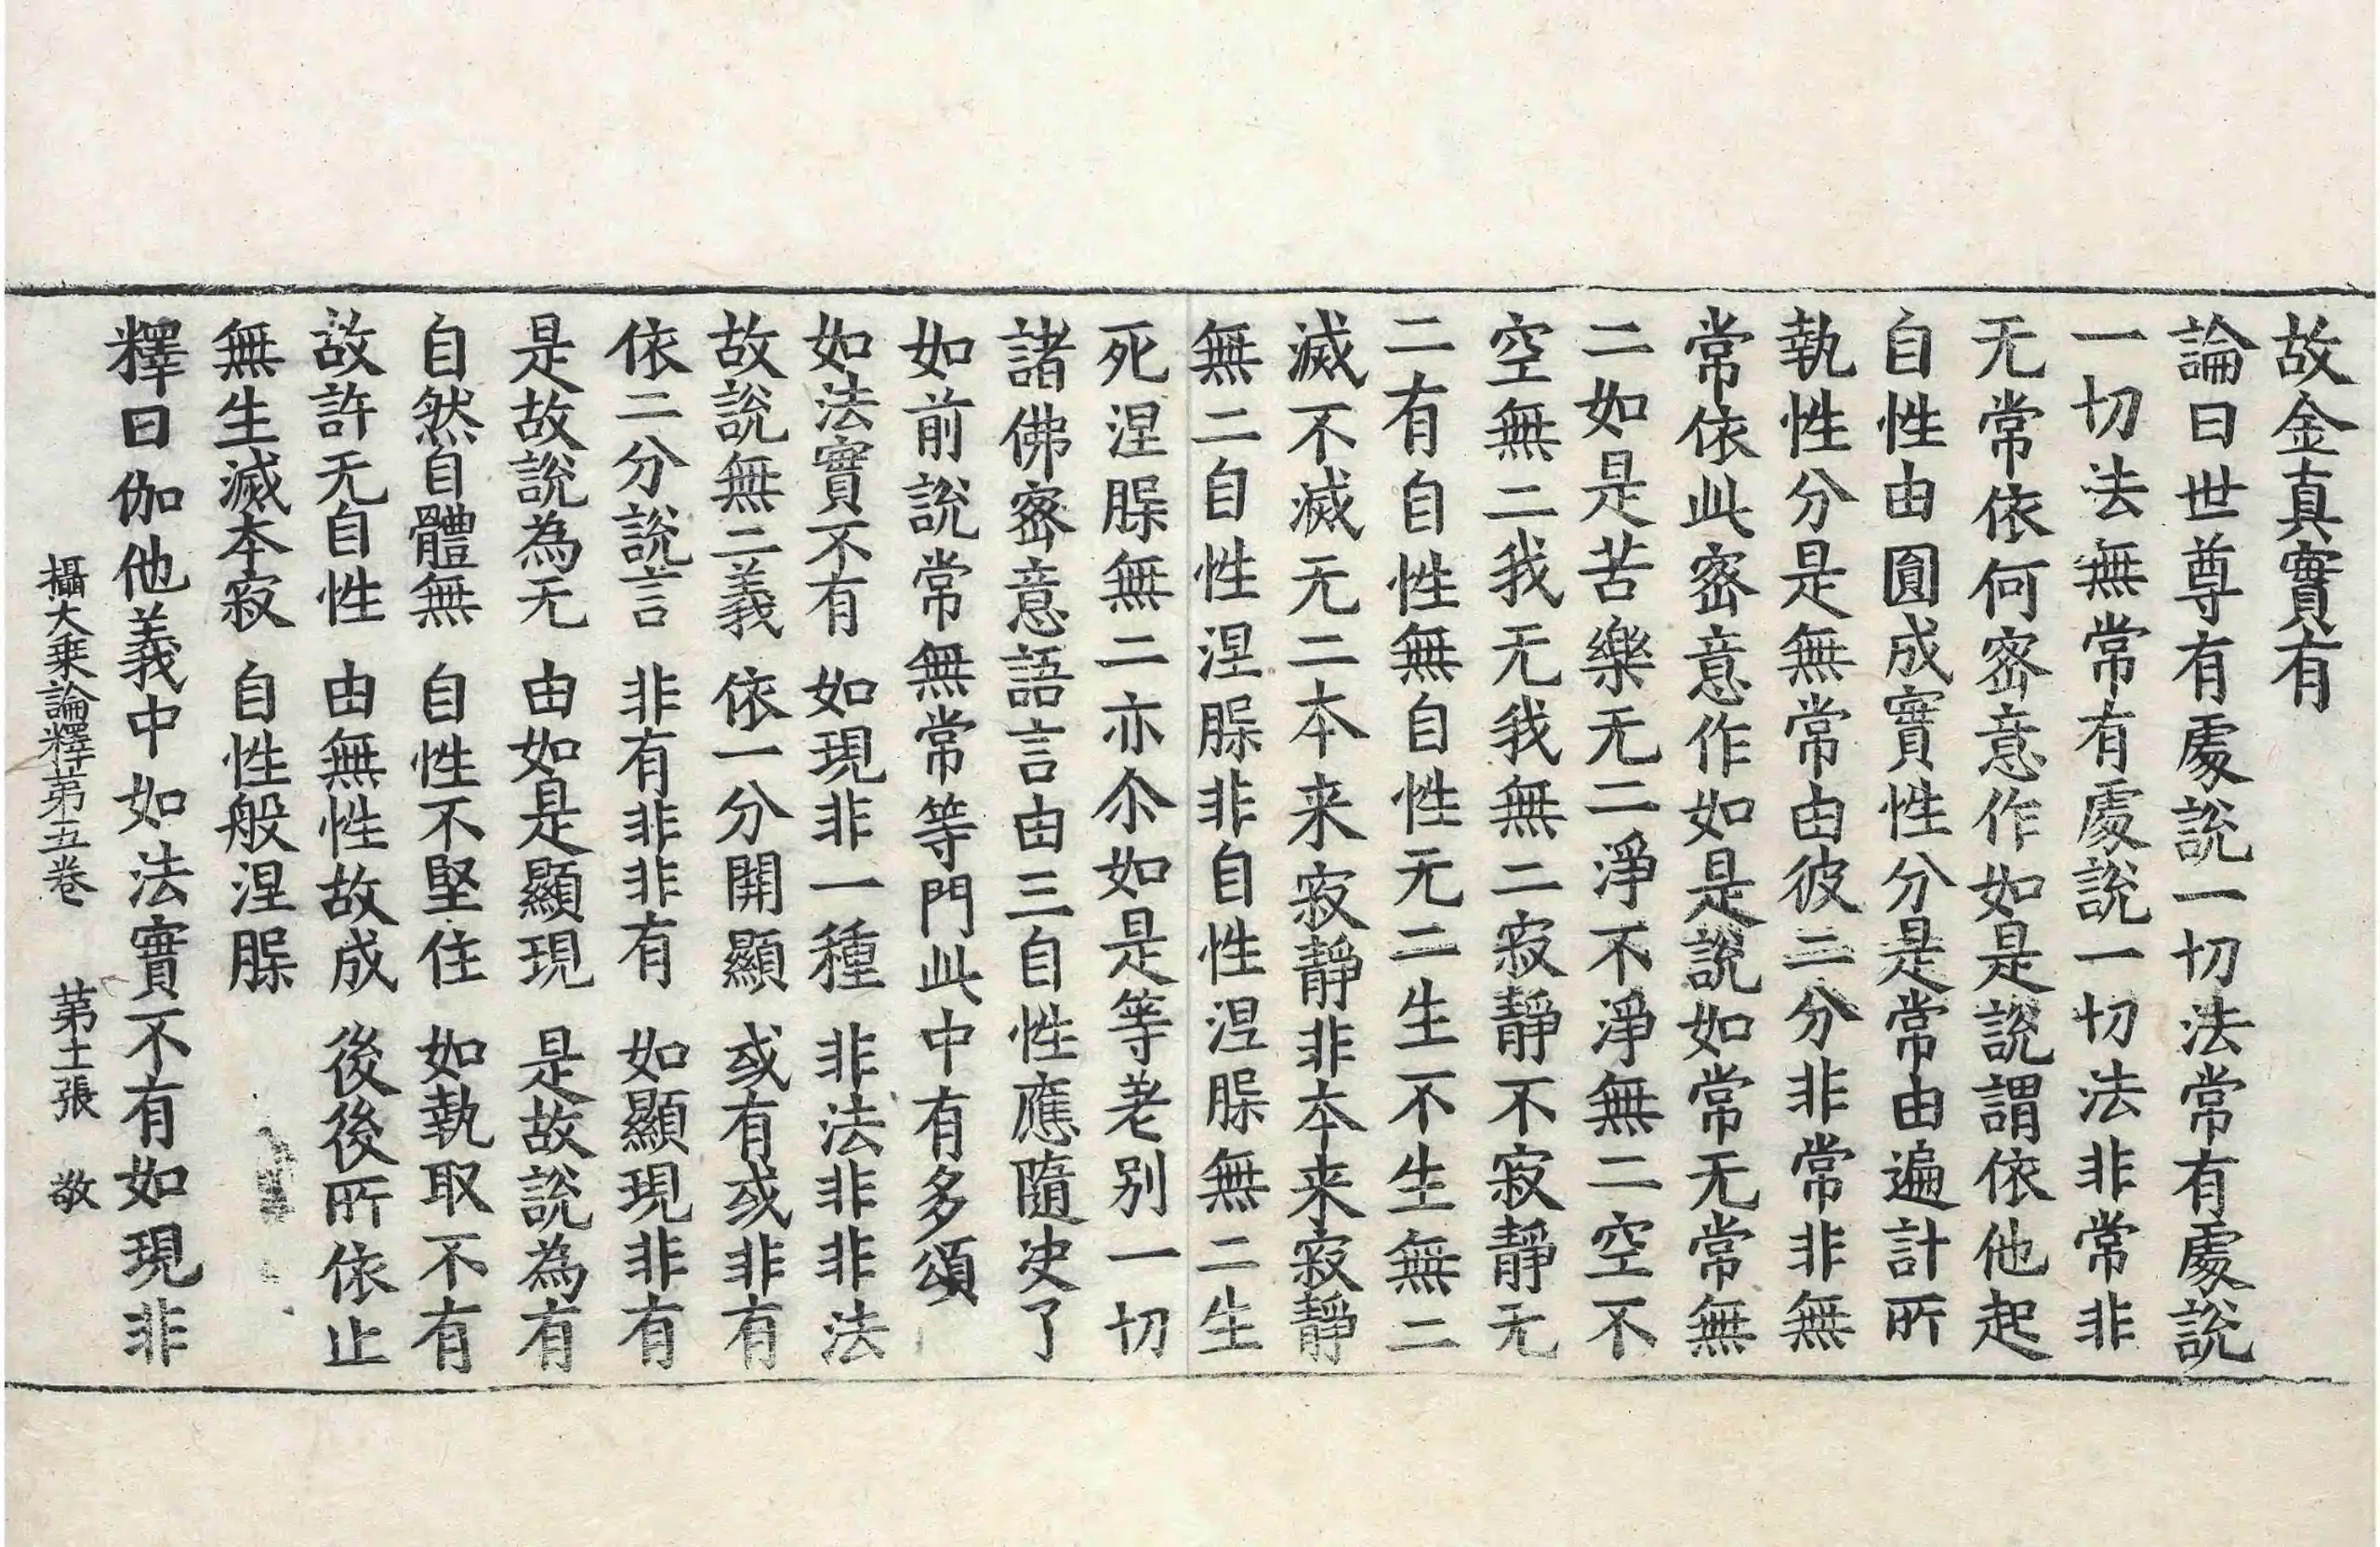 故金真實有
論曰世尊有處說一切法常有處說
一切法無常有處說一切法非常非
无常依何密意作如是說謂依他起
自性由圓成實性分是常由遍計所
執性分是無常由彼二分非常非無
常依此密意作如是說如常无常無
二如是苦樂无二淨不淨無二空不
空無二我无我無二寂靜不寂靜无
二有自性無自性无二生不生無二
滅不滅无二本来寂靜非本来寂靜
無二自性涅槃非自性涅槃無二生
死涅槃無二亦尒如是等差別一切
諸佛密意語言由三自性應隨决了
如前說常無常等門此中有多頌
如法實不有 如現非一種 非法非非法
故說無二義 依一分開顯 或有或非有
依二分說言 非有非非有 如顯現非有
是故說為无 由如是顯現 是故說為有
自然自體無 自性不堅住 如執取不有
故許无自性 由無性故成 後後所依止
無生滅本寂 自性般涅槃
釋曰伽他義中如法實不有如現非
攝大乗論釋第五卷 第十二張 敬